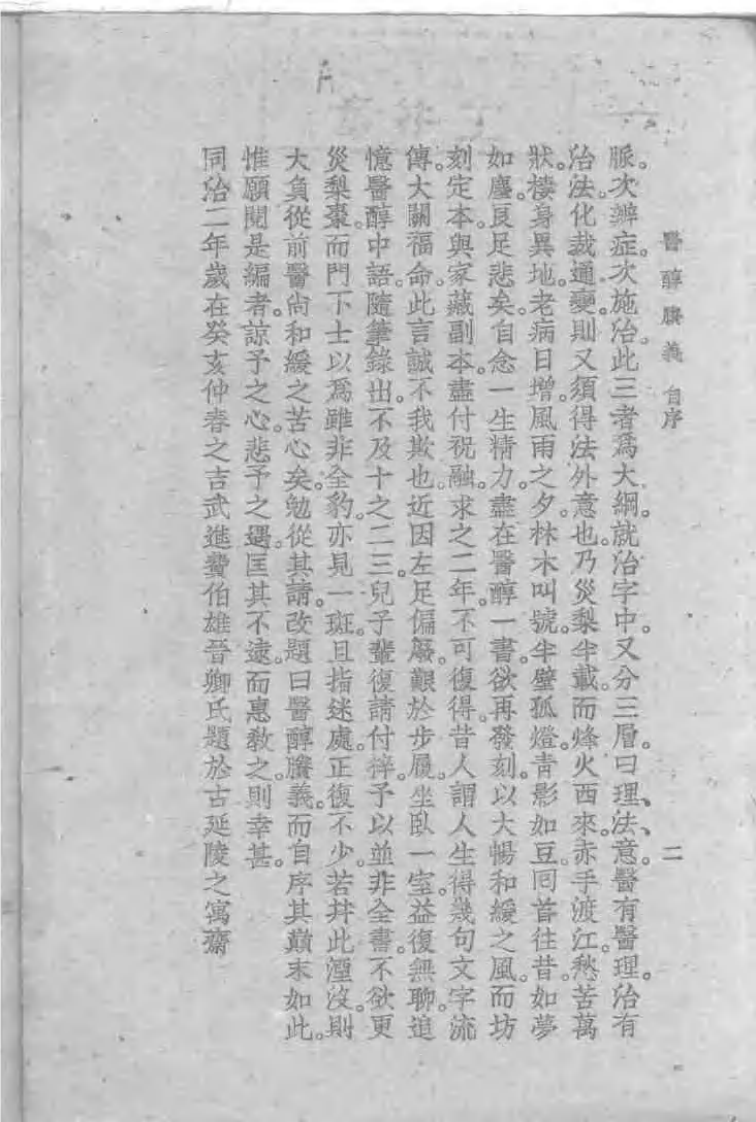 醫醇賸義 自序 二
脈。次辨症。次施治。此三者爲大綱。就治字中。又分三層。曰理、法、意。醫有醫理。治有
治法。化裁通變。則又須得法外意也。乃災梨半載。而烽火西來。赤手渡江。愁苦萬
狀。棲身異地。老病日增。風雨之夕。林木叫號。半壁孤燈。青影如豆。囘首往昔。如夢
如塵。良足悲矣。自念一生精力。盡在醫醇一書。欲再發刻。以大暢和緩之風。而坊
刻定本。與家藏副本。盡付祝融。求之二年。不可復得。昔人謂人生得幾句文字流
傳。大關福命。此言誠不我欺也。近因左足偏廢。艱於步履。坐臥一室。益復無聊。追
憶醫醇中語。隨筆錄出。不及十之二三。兒子輩復請付梓。予以並非全書。不欲更
災梨棗。而門下士以爲雖非全豹。亦見一斑。且指迷處。正復不少。若幷此湮沒。則
大負從前醫尙和緩之苦心矣。勉從其請。改題曰醫醇賸義。而自序其巔末如此。
惟願閱是編者。諒予之心。悲予之遇。匡其不逮。而惠敎之。則幸甚。
同治二年歲在癸亥仲春之吉武進費伯雄晉卿氏題於古延陵之寓齋